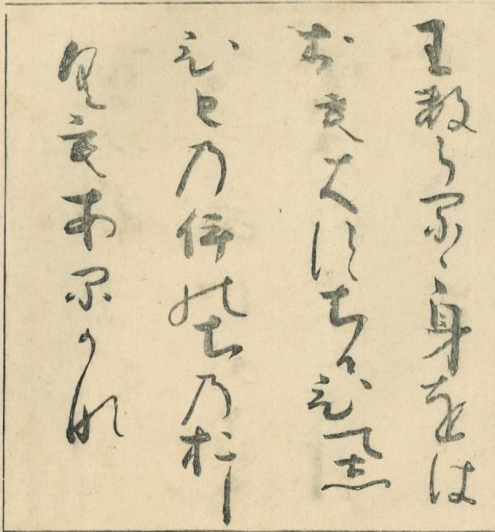 王数らるゝ身をは
おもはすちかひてし
ひとのいのちのおし
くもあるかな